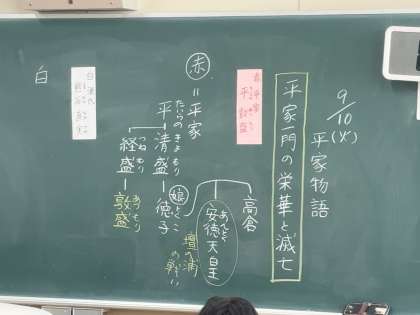 9/10(火)
平家物語
平家一門の栄華と滅亡
高倉
安徳天皇
あんとく
壇の浦の戦い
赤=平家
平清盛ー徳子
たいらのきよもり
娘
とくこ
経盛ー敦盛
つねもり
あつもり
白